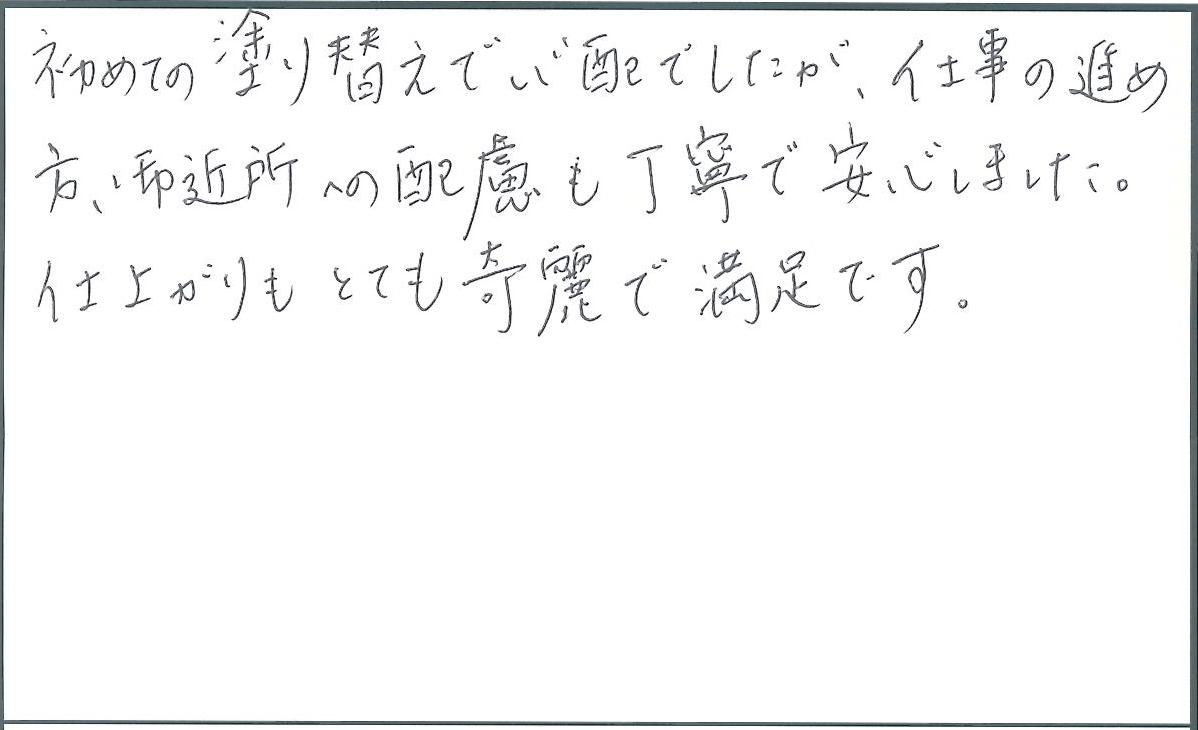 初めての塗り替えで心配でしたが、仕事の進め
方、御近所への配慮も丁寧で安心しました。
仕上がりもとても奇麗で満足です。